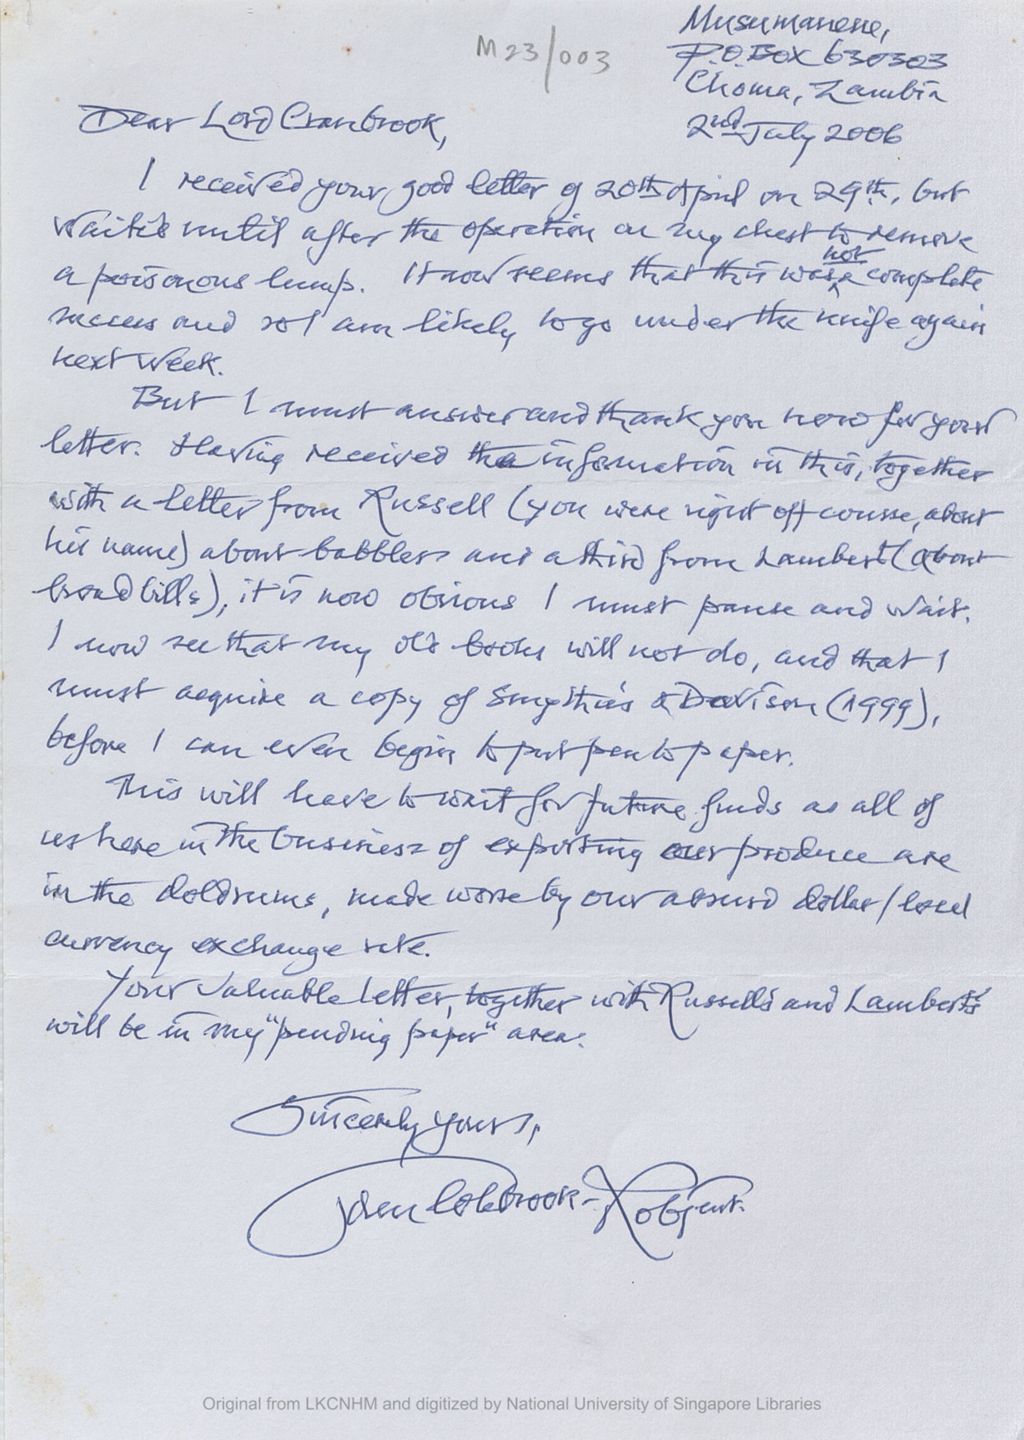 M23/003
Musumanene,
P.O. Box 630303
Choma, Zambia
2nd July 2006
Dear Lord Cranbrook,
I received your good letter of 20th April on 29th, but
waited until after the operation on my chest to remove
a poisonous lump. It now seems that this was not a complete
success and so I am likely to go under the knife again
next week.
But I must answer and thank you now for your
letter. Having received the information in this, together
with a letter from Russell (you were right off course, about
his name) about babblers and a third from Lambert (about
broadbills), it is now obvious I must pause and wait.
I now see that my old books will not do, and that I
must acquire a copy of Smythies & Davison (1999),
before I can even begin to put pen to paper.
This will have to wait for future funds as all of
us here in the business of exporting our produce are
in the doldrums, made worse by our absurd dollar/local
currency exchange rate.
Your valuable letter, together with Russell's and Lambert's
will be in my "pending paper" area.
Sincerely yours,
John Colebrook-Robjent.
Original from LKCNHM and digitized by National University of Singapore Libraries